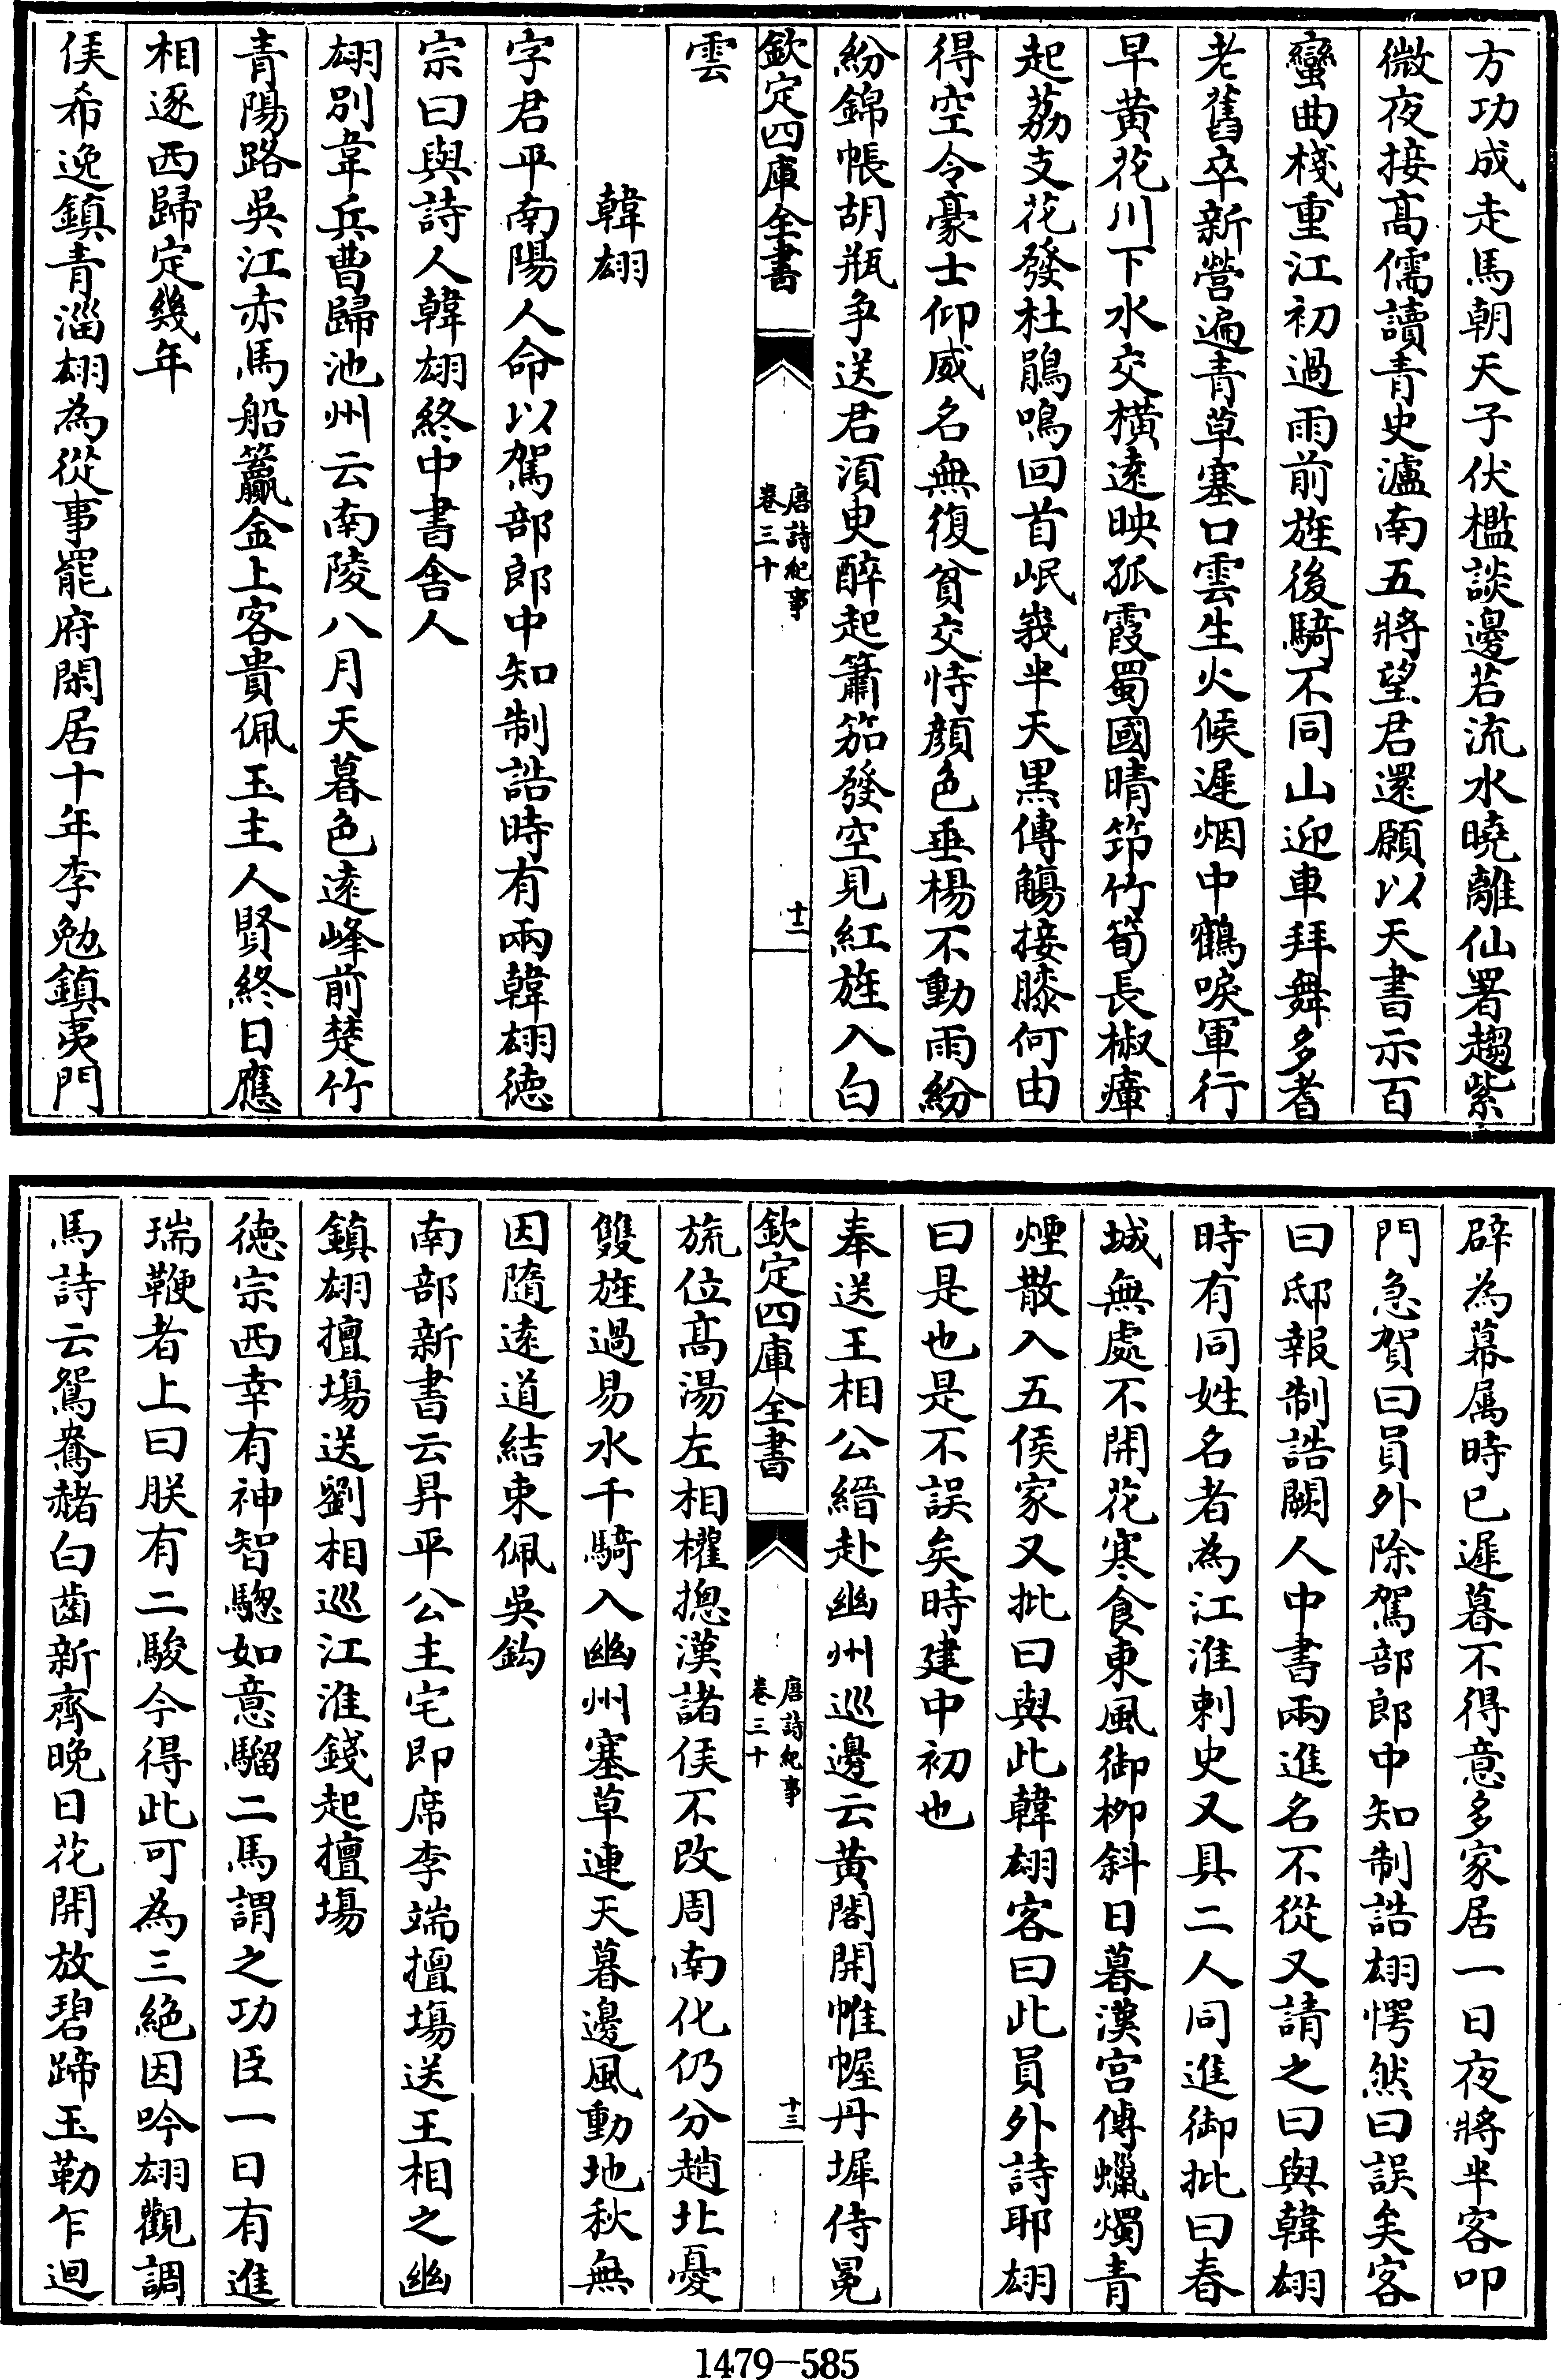 方功成走馬朝天子伏檻談邊若流水曉離仙署趨紫
微夜接髙儒讀青史瀘南五將望君還願以天書示百
蠻曲棧重江初過雨前旌後騎不同山迎車拜舞多耆
老舊卒新營遍青草塞口雲生火候遲烟中鶴唳軍行
早黄花川下水交横逺映孤霞蜀國晴笻竹筍長椒瘴
起荔支花發杜鵑鳴回首岷峩半天黒傳觴接膝何由
得空令豪士仰威名無復貧交恃顔色垂楊不動雨紛
紛錦帳胡瓶争送君湏臾醉起簫笳發空見紅旌入白
欽定四庫全書
唐詩紀事
卷三十
十二
雲
韓翃
字君平南陽人命以駕部郎中知制誥時有兩韓翃徳
宗曰與詩人韓翃終中書舍人
翃别韋兵曹歸池州云南陵八月天暮色逺峰前楚竹
青陽路吳江赤馬船籯金上客貴佩玉主人賢終日應
相逐西歸定幾年
侯希逸鎮青淄翃為從事罷府閑居十年李勉鎮夷門
辟為幕属時已遲暮不得意多家居一日夜將半客叩
門急賀曰員外除駕部郎中知制誥翃愕然曰誤矣客
曰邸報制誥闕人中書兩進名不從又請之曰與韓翃
時有同姓名者為江淮刺史又具二人同進御批曰春
城無處不開花寒食東風御栁斜日暮漢宫傳蠟燭青
煙散入五侯家又批曰與此韓翃客曰此員外詩耶翃
曰是也是不誤矣時建中初也
奉送王相公縉赴幽州巡邊云黄閣開帷幄丹墀侍冕
欽定四庫全書
唐詩紀事
卷三十
十三
旒位髙湯左相權摠漢諸侯不改周南化仍分趙北憂
雙旌過易水千騎入幽州塞草連天暮邊風動地秋無
因隨逺道結束佩吳鈎
南部新書云昇平公主宅即席李端擅塲送王相之幽
鎮翃擅塲送劉相巡江淮錢起擅塲
徳宗西幸有神智驄如意騮二馬謂之功臣一日有進
瑞鞭者上曰朕有二駿今得此可為三絶因吟翃觀調
馬詩云鴛鴦赭白齒新齊晩日花開放碧蹄玉勒乍迴
1479-585